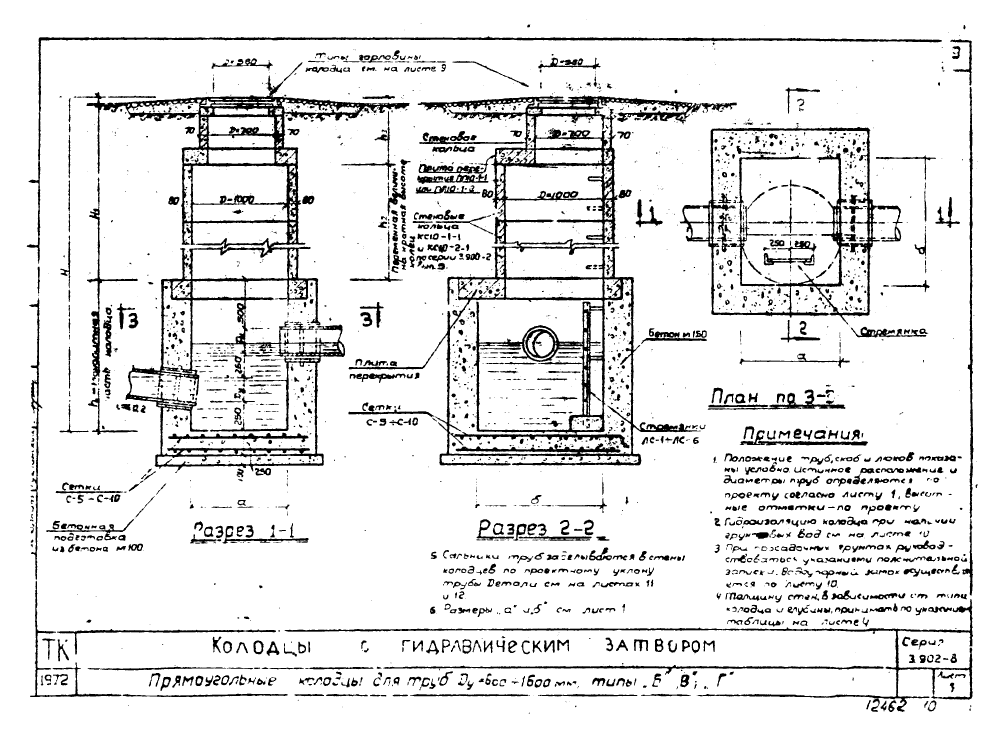 3
D=580
Типы горловины
колодца см. на листе 9
D=580
70
D=700
70
70
D=700
70
h₁
Стеновое
кольцо
Плита пере-
крытия ПП10-1-1
или ПП10-1-2
80
D=1000
80
80
D=1000
80
Стеновые
кольца
КС10-1-1
и КС10-2-1
по серии 3.900-2
вып. 5.
Переменная величи-
на кратная высоте
колец
h₂
H₁
H
h₂ - рабочая
часть колодца
3
3
500
Dу
250
Dу
250
i=0,2
Плита
перекрытия
Сетки
С-9÷С-10
Бетон м150
Стремянки
ЛС-1÷ЛС-6
Сетки
С-5÷С-10
Бетонная
подготовка
из бетона м100.
100
250
а
б
Разрез 1-1
Разрез 2-2
2
1
1
250
250
б
Стремянка
2
а
План по 3-3
Примечания:
1. Положение труб, скоб и люков показа-
ны условно. Истинное расположение и
диаметры труб определяются по
проекту согласно листу 1, высот-
ные отметки-по проекту
2. Гидроизоляцию колодца при наличии
грунтовых вод см на листе 10
3. При просадочных грунтах руковод-
ствоваться указаниями пояснительной
записки. Водоупорный замок осуществля-
ется по листу 10.
4. Толщину стен, в зависимости от типа
колодца и глубины, принимать по указаниям
таблицы на листе 4
5. Сальники труб заделываются в стены
колодцев по проектному уклону
трубы Детали см на листах 11
и 12.
6. Размеры „а" и „б" см. лист 1
ТК
Колодцы с гидравлическим затвором
Серия
3.902-8
1972
Прямоугольные колодцы для труб Dу=600÷1600мм, типы „Б", „В", „Г"
Лист
12462 10